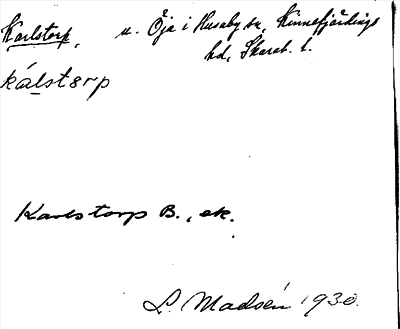 Karlstorp, u. Öja i Husaby sn, Kinnefjärdings
hd, Skarab. l.
kálstørp
Karlstorp B., ek.
L. Madsén 1930.